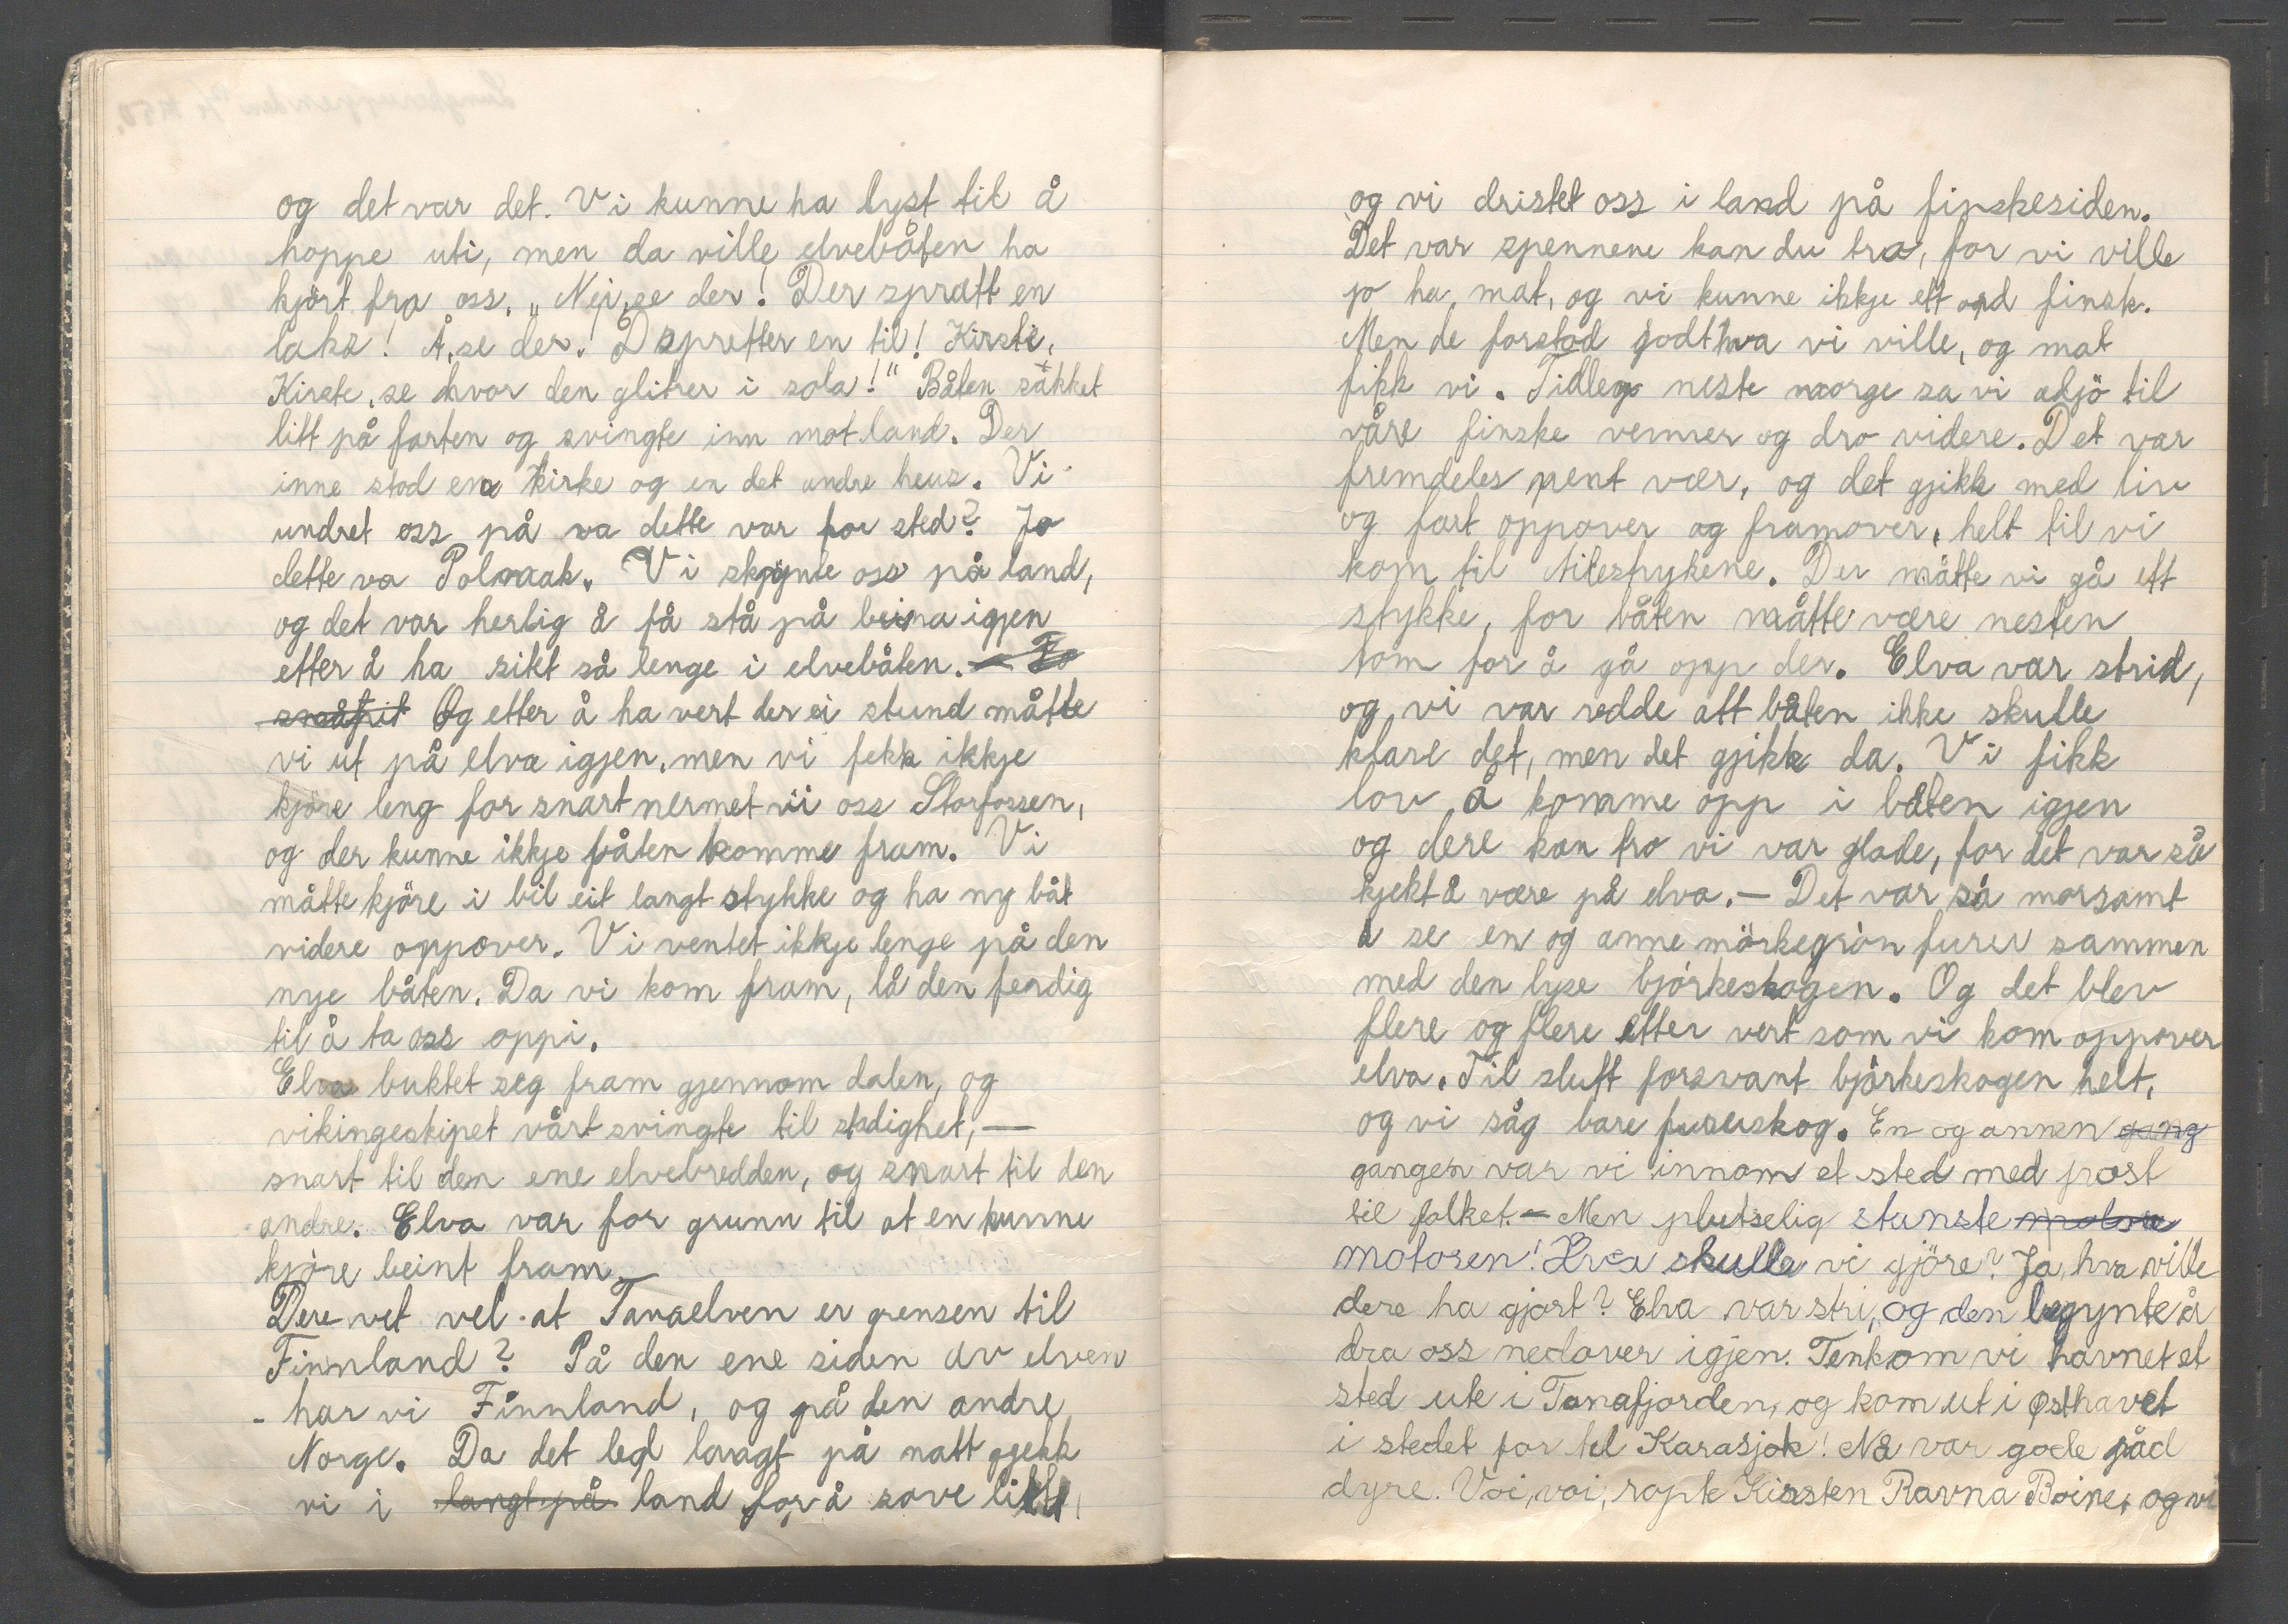 og det var det. Vi kunne ha lyst til å
hoppe uti, men da ville elvebåten ha
kjört fra oss. „Nei, se der! Der spratt en
laks! Å, se der! D spretter en til! Kirste,
Kirste, se hvor den glitrer i sola!" Båten sakket
litt på farten og svingte inn mot land. Der
inne stod en kirke og en det andre heus. Vi
undret oss på va dette var for sted? Jo
dette va Polmak. Vi skjynte oss på land,
og det var herlig å få stå på beina igjen
etter å ha sitt så lenge i elvebåten. –
Og etter å ha vert der ei stund måtte
vi ut på elva igjen, men vi fekk ikkje
kjöre leng for snart nermet vi oss Storfossen,
og der kunne ikkje båten komme fram. Vi
måtte kjöre i bil eit langt stykke og ha ny båt
videre oppover. Vi ventet ikkje lenge på den
nye båten. Da vi kom fram, lå den ferdig
til å ta oss oppi.
Elva buktet seg fram gjennom dalen, og
vikingeskipet vårt svingte til stadighet, —
snart til den ene elvebredden, og snart til den
andre. Elva var for grunn til at en kunne
kjöre beint fram.
Dere vet vel at Tanaelven er grensen til
Finnland? På den ene siden av elven
har vi Finnland, og på den andre
Norge. Da det led langt på natt gjekk
vi i langt på land for å sove litt,
og vi dristet oss i land på finskesiden.
Det var spennene kan du tro, for vi ville
jo ha mat, og vi kunne ikkje ett ord finsk.
Men de forstod godt hva vi ville, og mat
fikk vi. Tidleg neste morge sa vi adjö til
våre finske venner og dro videre. Det var
fremdeles pent vær, og det gjikk med liv
og fart oppover og framover, helt til vi
kom til Ailestrykene. Der måtte vi gå ett
stykke, for båten måtte være nesten
tom for å gå opp der. Elva var strid,
og vi var redde att båten ikke skulle
klare det, men det gjikk da. Vi fikk
lov å komme opp i båten igjen
og dere kan tro vi var glade, for det var så
kjekt å være på elva. — Det var så morsamt
å se en og anne mörkegrön furu sammen
med den lyse björkeskogen. Og det blev
flere og flere etter vert som vi kom oppover
elva. Til slutt forsvant björkeskogen helt,
og vi såg bare furuskog. En og annen gang
gangen var vi innom et sted med post
til folket. – Men plutselig stanste motore
motoren! Hva skulle vi gjöre? Ja, hva ville
dere ha gjort? Elva var stri, og den begynte å
dra oss nedover igjen. Tenk om vi havnet et
sted ute i Tanafjorden, og kom ut i Østhavet
i stedet for tel Karasjok! Nå var gode råd
dyre. Voi, voi, ropte Kirsten Ravna Boine, og vi